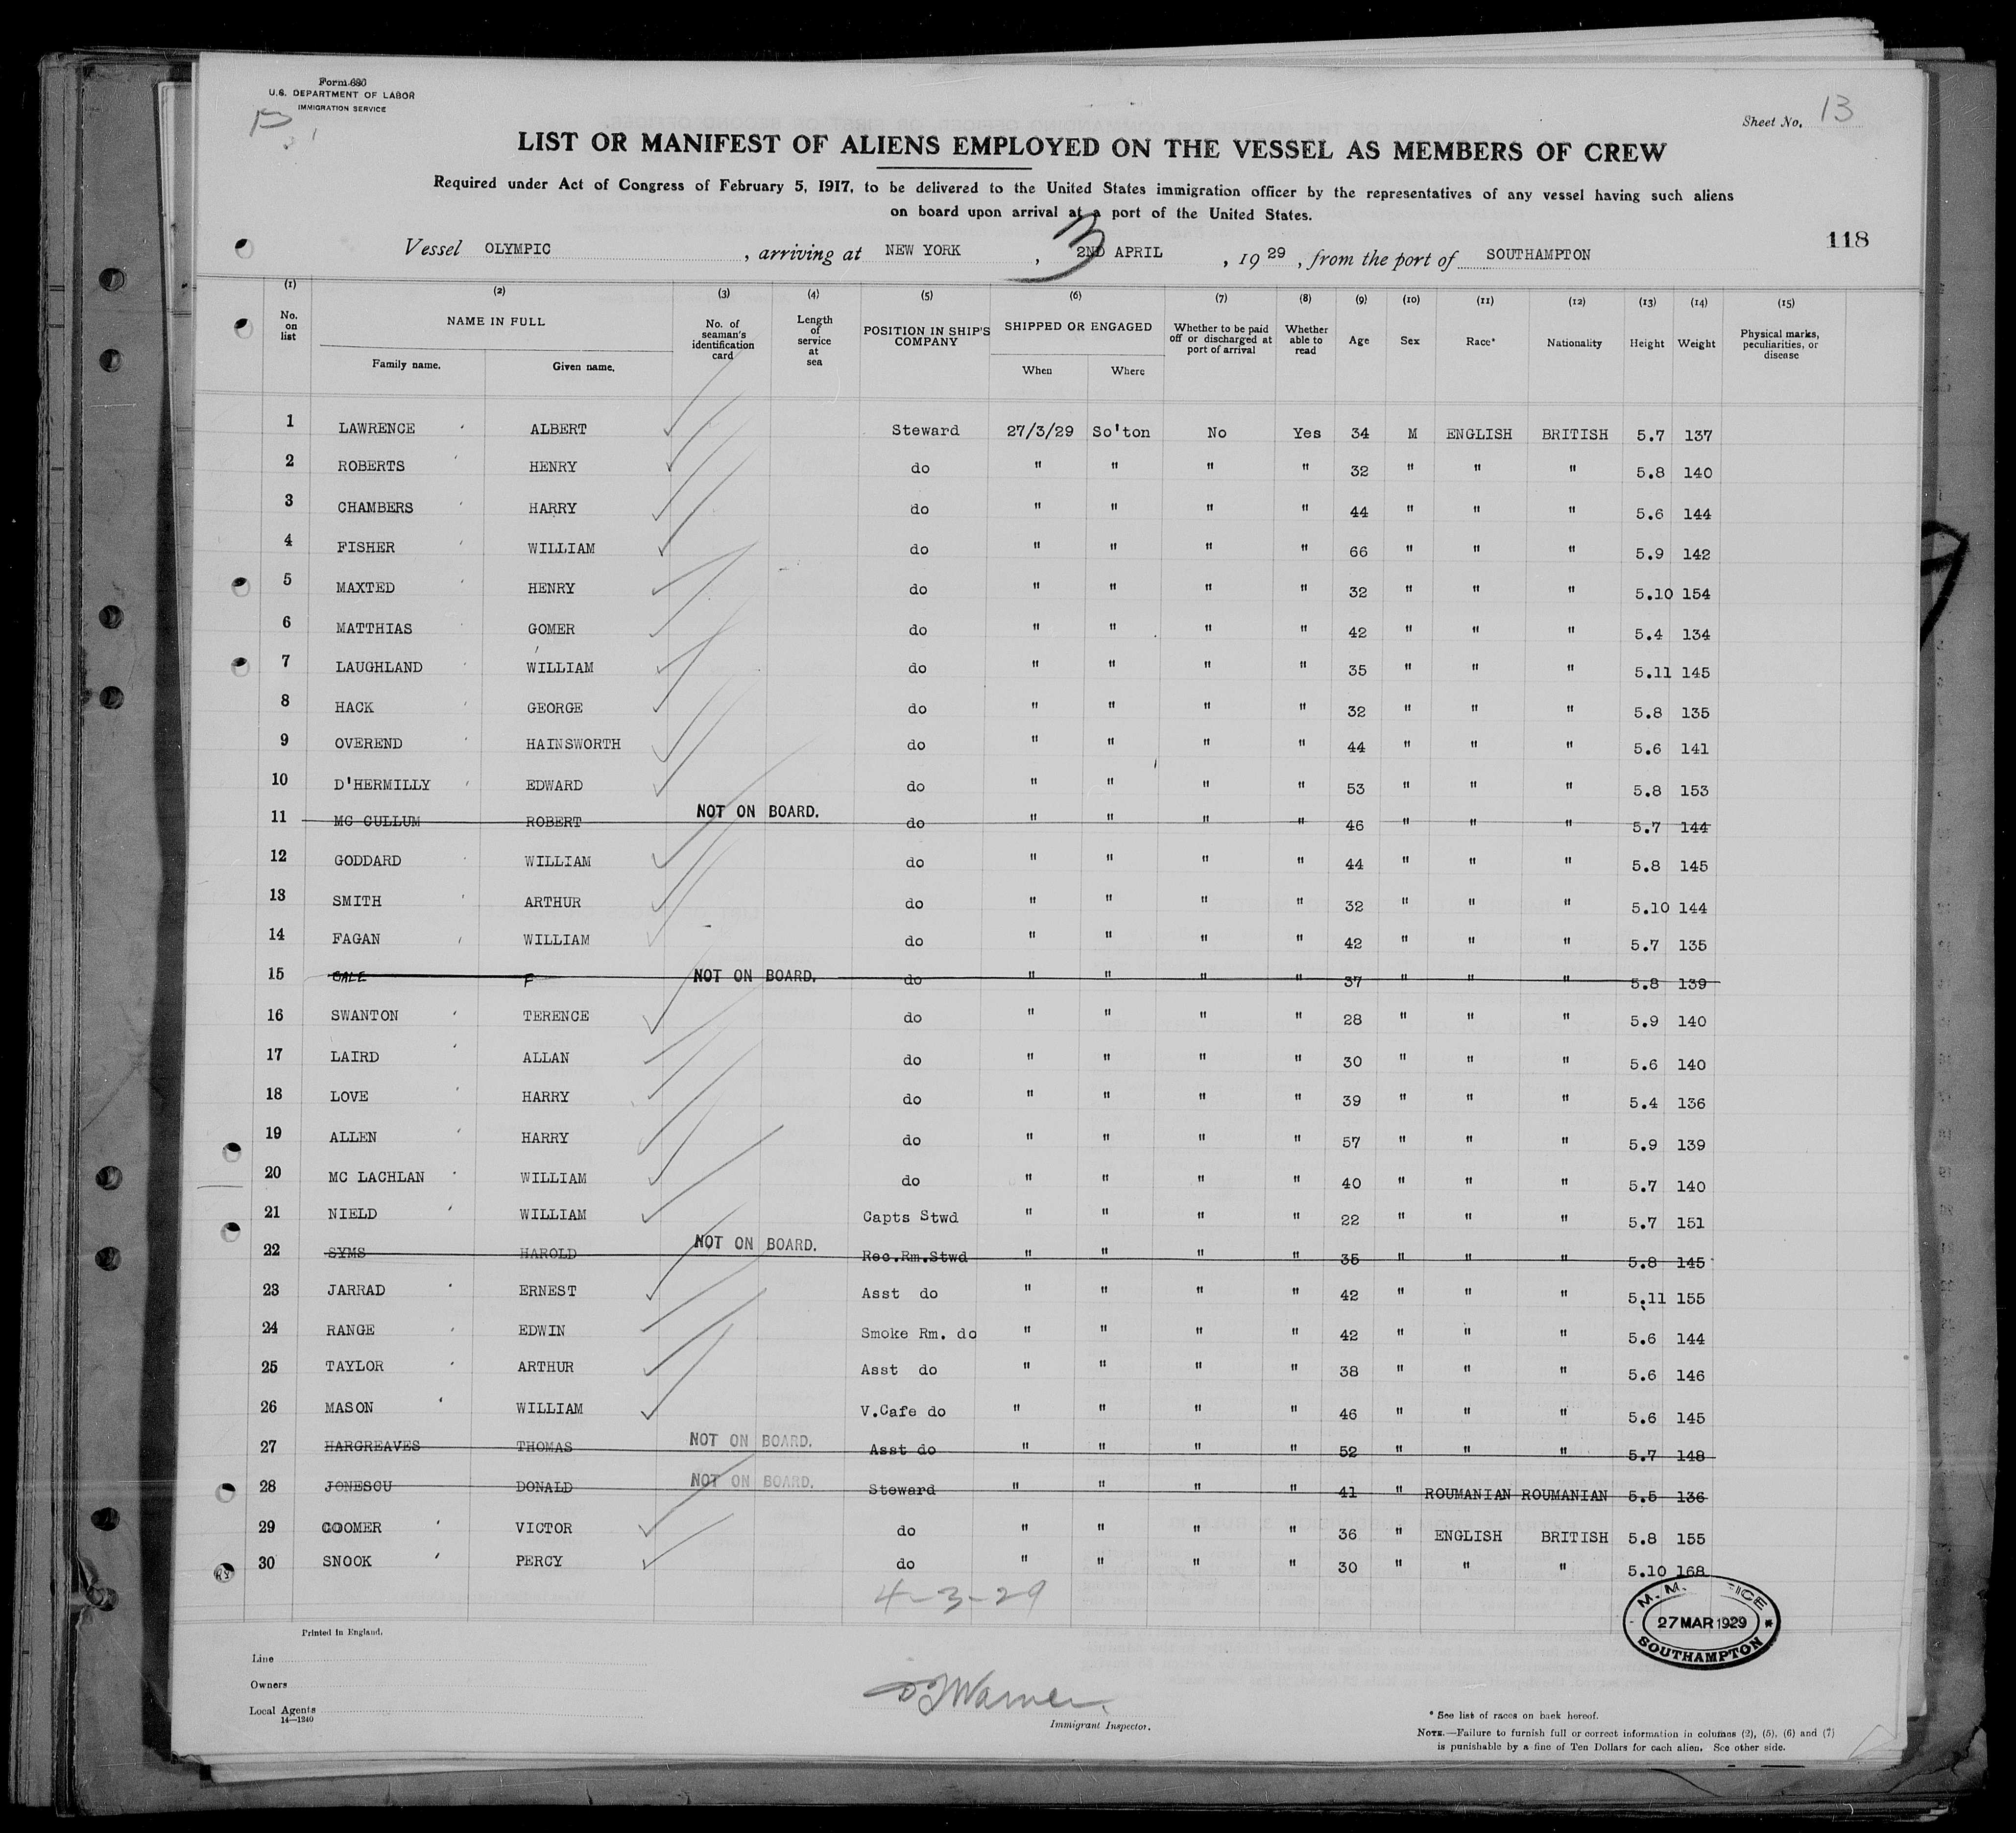 Form 680
U.S. DEPARTMENT OF LABOR
IMMIGRATION SERVICE
13
Sheet No. 13
LIST OR MANIFEST OF ALIENS EMPLOYED ON THE VESSEL AS MEMBERS OF CREW
Required under Act of Congress of February 5, 1917, to be delivered to the United States immigration officer by the representatives of any vessel having such aliens
on board upon arrival at a port of the United States.
118
Vessel OLYMPIC , arriving at NEW YORK , 3 2ND APRIL , 19 29 , from the port of SOUTHAMPTON
(1) (2) (3) (4) (5) (6) (7) (8) (9) (10) (11) (12) (13) (14) (15)
No. on list NAME IN FULL Family name. Given name. No. of seaman's identification card Length of service at sea POSITION IN SHIP'S COMPANY SHIPPED OR ENGAGED When Where Whether to be paid off or discharged at port of arrival Whether able to read Age Sex Race* Nationality Height Weight Physical marks, peculiarities, or disease
1 LAWRENCE ALBERT Steward 27/3/29 So'ton No Yes 34 M ENGLISH BRITISH 5.7 137
2 ROBERTS HENRY do " " " " 32 " " " 5.8 140
3 CHAMBERS HARRY do " " " " 44 " " " 5.6 144
4 FISHER WILLIAM do " " " " 66 " " " 5.9 142
5 MAXTED HENRY do " " " " 32 " " " 5.10 154
6 MATTHIAS GOMER do " " " " 42 " " " 5.4 134
7 LAUGHLAND WILLIAM do " " " " 35 " " " 5.11 145
8 HACK GEORGE do " " " " 32 " " " 5.8 135
9 OVEREND HAINSWORTH do " " " " 44 " " " 5.6 141
10 D'HERMILLY EDWARD do " " " " 53 " " " 5.8 153
11 MC CULLUM ROBERT NOT ON BOARD. do " " " " 46 " " " 5.7 144
12 GODDARD WILLIAM do " " " " 44 " " " 5.8 145
13 SMITH ARTHUR do " " " " 32 " " " 5.10 144
14 FAGAN WILLIAM do " " " " 42 " " " 5.7 135
15 GALE F NOT ON BOARD. do " " " " 37 " " " 5.8 139
16 SWANTON TERENCE do " " " " 28 " " " 5.9 140
17 LAIRD ALLAN do " " " " 30 " " " 5.6 140
18 LOVE HARRY do " " " " 39 " " " 5.4 136
19 ALLEN HARRY do " " " " 57 " " " 5.9 139
20 MC LACHLAN WILLIAM do " " " " 40 " " " 5.7 140
21 NIELD WILLIAM Capts Stwd " " " " 22 " " " 5.7 151
22 SYMS HAROLD NOT ON BOARD. Rec.Rm.Stwd " " " " 35 " " " 5.8 145
23 JARRAD ERNEST Asst do " " " " 42 " " " 5.11 155
24 RANGE EDWIN Smoke Rm. do " " " " 42 " " " 5.6 144
25 TAYLOR ARTHUR Asst do " " " " 38 " " " 5.6 146
26 MASON WILLIAM V.Cafe do " " " " 46 " " " 5.6 145
27 HARGREAVES THOMAS NOT ON BOARD. Asst do " " " " 52 " " " 5.7 148
28 JONESCU DONALD NOT ON BOARD. Steward " " " " 41 " ROUMANIAN ROUMANIAN 5.5 136
29 COOMER VICTOR do " " " " 36 " ENGLISH BRITISH 5.8 155
30 SNOOK PERCY do " " " " 30 " " " 5.10 168
4-3-29
M. M. 27 MAR 1929 SOUTHAMPTON
Printed in England.
Line
Owners
Local Agents
14—1240
Warner
Immigrant Inspector.
* See list of races on back hereof.
NOTE.—Failure to furnish full or correct information in columns (2), (5), (6) and (7)
is punishable by a fine of Ten Dollars for each alien. See other side.